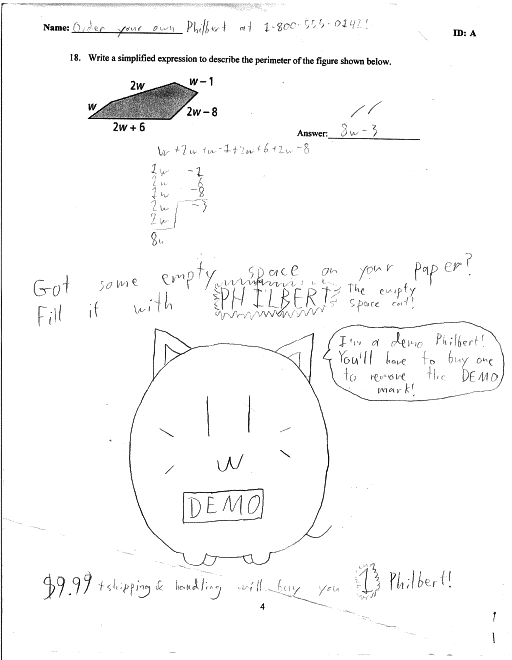 Name: Order your own Philbert at 1-800-555-0142!
ID: A
18. Write a simplified expression to describe the perimeter of the figure shown below.
2w
w – 1
w
2w – 8
2w + 6
Answer: 8w - 3
w + 2w + w - 1 + 2w + 6 + 2w - 8
1w -1
2w 6
1w -8
2w -3
2w
8w
Got some empty space on your paper?
Fill it with PHILBERT: The empty
space cat!
I'm a demo Philbert!
You'll have to buy one
to remove the DEMO
mark!
w
DEMO
$9.99 + shipping & handling will buy you 1 Philbert!
4